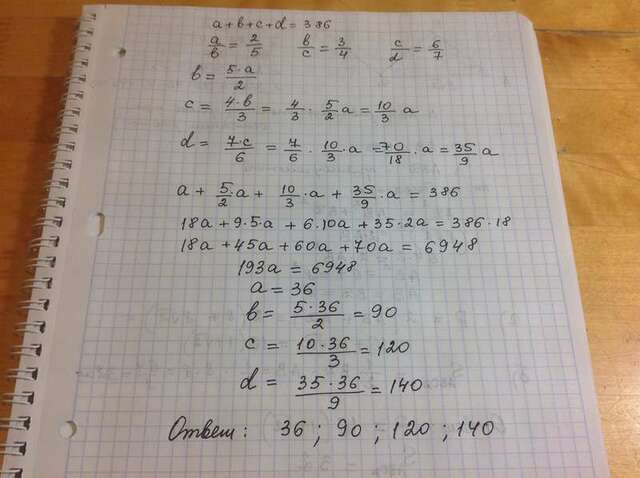 a + b + c + d = 386
a/b = 2/5 b/c = 3/4 c/d = 6/7
b = 5·a/2
c = 4·b/3 = 4/3 · 5/2 a = 10/3 a
d = 7·c/6 = 7/6 · 10/3 · a = 70/18 · a = 35/9 a
a + 5/2 · a + 10/3 · a + 35/9 · a = 386
18a + 9·5·a + 6·10a + 35·2a = 386·18
18a + 45a + 60a + 70a = 6948
193a = 6948
a = 36
b = 5·36/2 = 90
c = 10·36/3 = 120
d = 35·36/9 = 140
Ответ: 36 ; 90 ; 120 ; 140